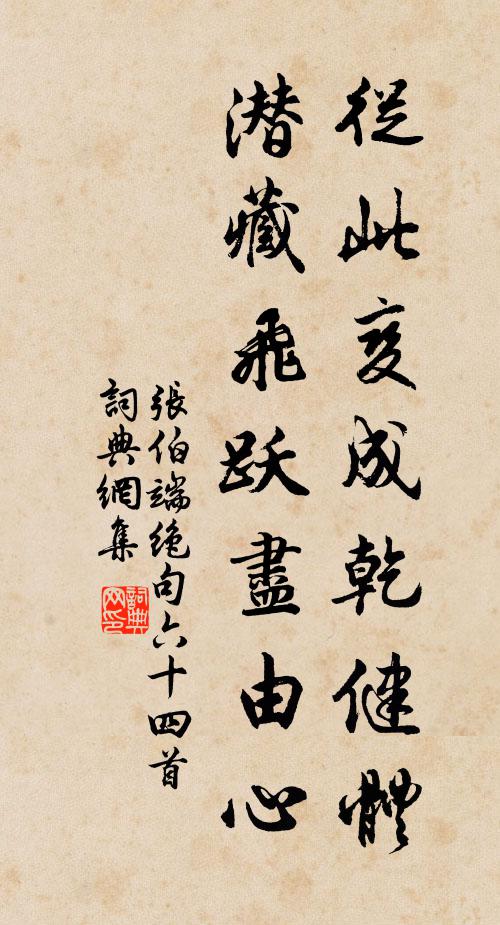 從此變成乾健體
潛藏飛躍盡由心
張伯端絶句六十四首
詞典網集
詞典
网印